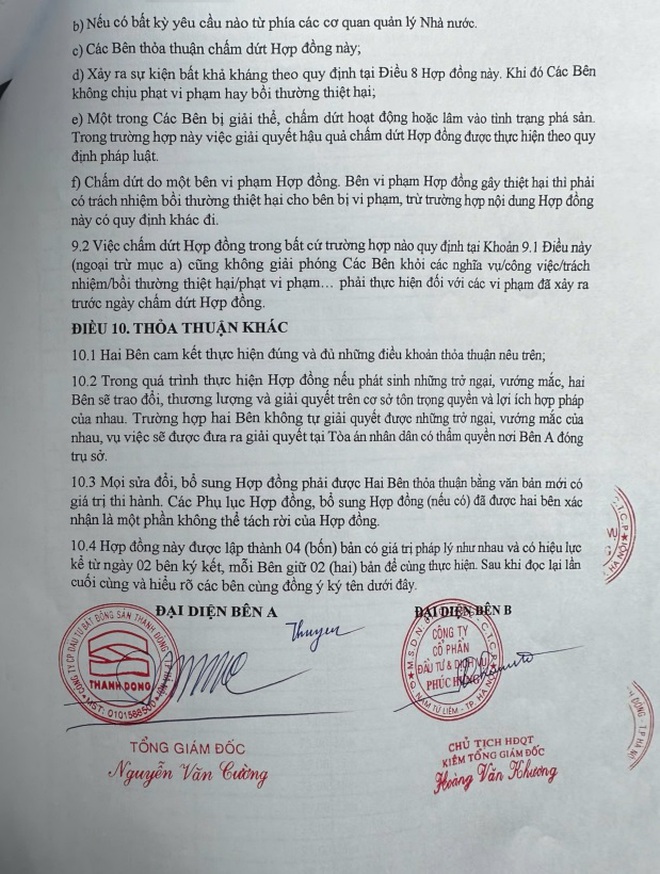 b) Nếu có bất kỳ yêu cầu nào từ phía các cơ quan quản lý Nhà nước.
c) Các Bên thỏa thuận chấm dứt Hợp đồng này;
d) Xảy ra sự kiện bất khả kháng theo quy định tại Điều 8 Hợp đồng này. Khi đó Các Bên
không chịu phạt vi phạm hay bồi thường thiệt hại;
e) Một trong Các Bên bị giải thể, chấm dứt hoạt động hoặc lâm vào tình trạng phá sản.
Trong trường hợp này việc giải quyết hậu quả chấm dứt Hợp đồng được thực hiện theo quy
định pháp luật.
f) Chấm dứt do một bên vi phạm Hợp đồng. Bên vi phạm Hợp đồng gây thiệt hại thì phải
có trách nhiệm bồi thường thiệt hại cho bên bị vi phạm, trừ trường hợp nội dung Hợp đồng
này có quy định khác đi.
9.2 Việc chấm dứt Hợp đồng trong bất cứ trường hợp nào quy định tại Khoản 9.1 Điều này
(ngoại trừ mục a) cũng không giải phóng Các Bên khỏi các nghĩa vụ/công việc/trách
nhiệm/bồi thường thiệt hại/phạt vi phạm… phải thực hiện đối với các vi phạm đã xảy ra
trước ngày chấm dứt Hợp đồng.
ĐIỀU 10. THỎA THUẬN KHÁC
10.1 Hai Bên cam kết thực hiện đúng và đủ những điều khoản thỏa thuận nêu trên;
10.2 Trong quá trình thực hiện Hợp đồng nếu phát sinh những trở ngại, vướng mắc, hai
Bên sẽ trao đổi, thương lượng và giải quyết trên cơ sở tôn trọng quyền và lợi ích hợp pháp
của nhau. Trường hợp hai Bên không tự giải quyết được những trở ngại, vướng mắc của
nhau, vụ việc sẽ được đưa ra giải quyết tại Tòa án nhân dân có thẩm quyền nơi Bên A đóng
trụ sở.
10.3 Mọi sửa đổi, bổ sung Hợp đồng phải được Hai Bên thỏa thuận bằng văn bản mới có
giá trị thi hành. Các Phụ lục Hợp đồng, bổ sung Hợp đồng (nếu có) đã được hai bên xác
nhận là một phần không thể tách rời của Hợp đồng.
10.4 Hợp đồng này được lập thành 04 (bốn) bản có giá trị pháp lý như nhau và có hiệu lực
kể từ ngày 02 bên ký kết, mỗi Bên giữ 02 (hai) bản để cùng thực hiện. Sau khi đọc lại lần
cuối cùng và hiểu rõ các bên cùng đồng ý ký tên dưới đây.
ĐẠI DIỆN BÊN A
ĐẠI DIỆN BÊN B
Thuyen
CÔNG TY CP ĐẦU TƯ BẤT ĐỘNG SẢN THÀNH ĐÔNG
THANH DONG
CÔNG TY
CỔ PHẦN
ĐẦU TƯ & DỊCH VỤ
PHÚC
NAM TỪ LIÊM - TP. HÀ
TỔNG GIÁM ĐỐC
Nguyễn Văn Cường
CHỦ TỊCH HĐQT
KIÊM TỔNG GIÁM ĐỐC
Hoàng Văn Khương